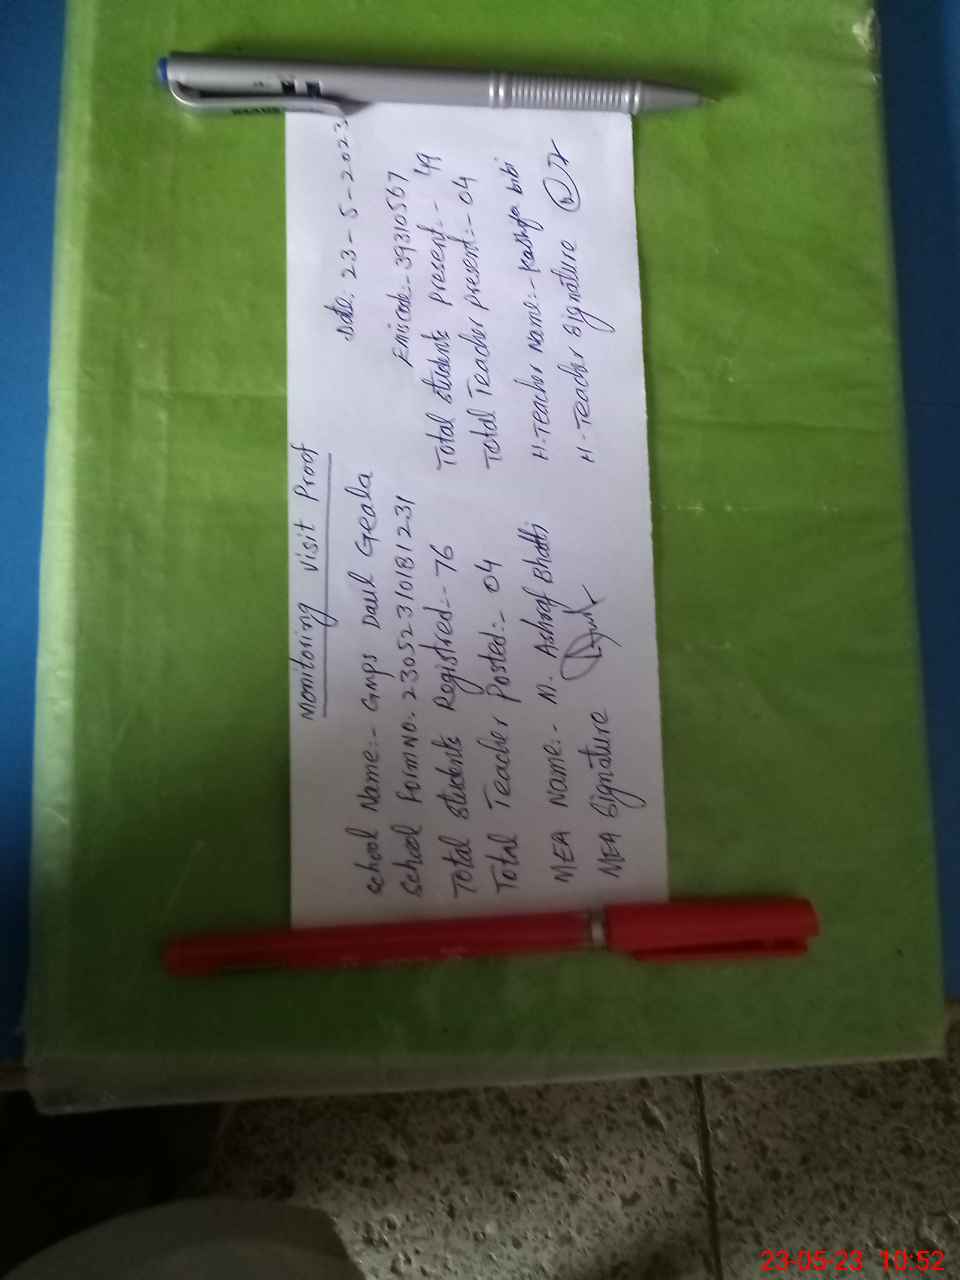 Monitoring Visit Proof
Date: 23-5-2023
School Name:- GMPS Daul Geala
Emiscode:- 39310567
School Form No. 230523101181231
Total Students Registred:- 76
Total Students Present:- 49
Total Teacher Posted:- 04
Total Teacher Present:- 04
MEA Name:- M. Ashraf Bhatti
H-Teacher Name:- Kashfa bibi
MEA Signature
H-Teacher Signature
23-05-23 10:52